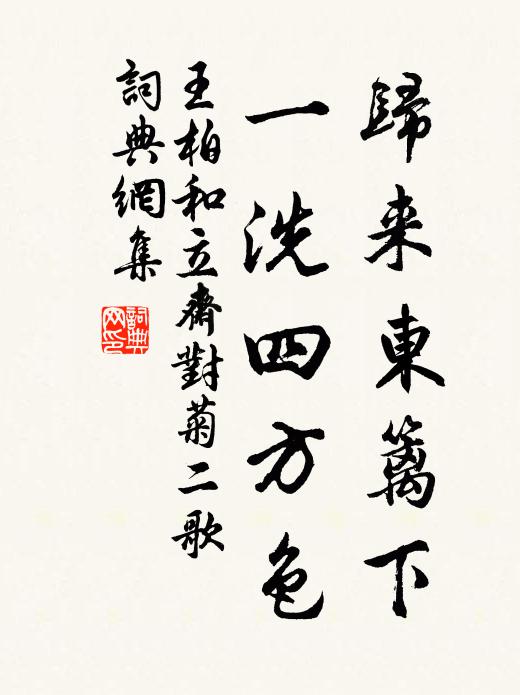 歸来東籬下
一洗四方色
王柏和立齋對菊二歌
詞典網集
詞典
网印